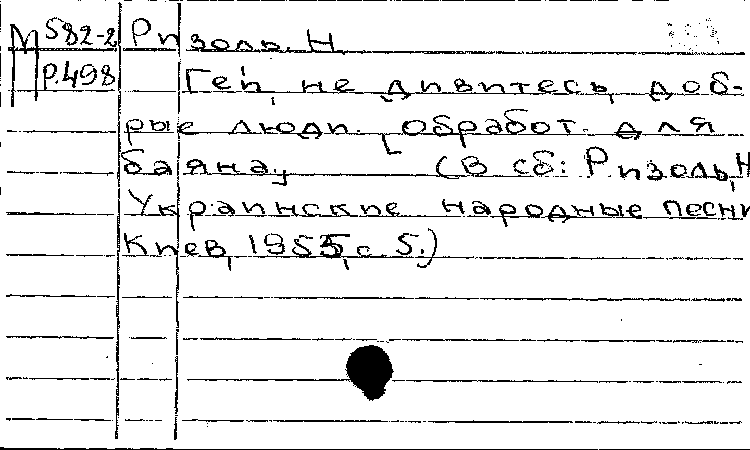 М 582-2 Ризоль, Н.
Р.498 Гей, не дивитесь, доб-
рые люди. [Обработ. для
баяна] (В сб: Ризоль, Н
Украинские народные песни
Киев, 1955, с. 5.)